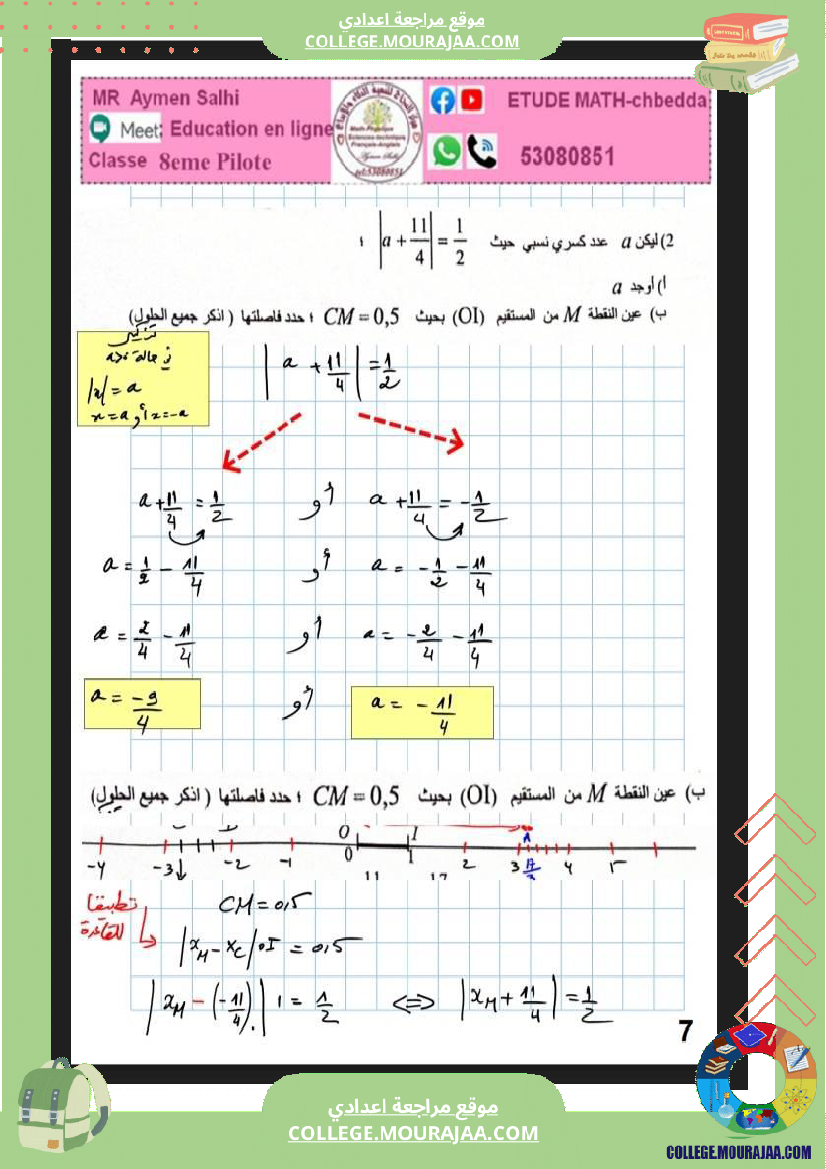 موقع مراجعة اعدادي
COLLEGE.MOURAJAA.COM
MR Aymen Salhi
Meet: Education en ligne
Classe 8eme Pilote
ETUDE MATH-chbedda
53080851
2) ليكن a عدد كسري نسبي حيث |a + 11/4| = 1/2 ؛
أ) أوجد a
ب) عين النقطة M من المستقيم (OI) بحيث CM = 0,5 ؛ حدد فاصلتها ( اذكر جميع الحلول)
تذكير
في حالة a>0
|x| = a
x = a أو x = -a
|a + 11/4| = 1/2
a + 11/4 = 1/2 أو a + 11/4 = -1/2
a = 1/2 - 11/4 أو a = -1/2 - 11/4
a = 2/4 - 11/4 أو a = -2/4 - 11/4
a = -9/4 أو a = -11/4
ب) عين النقطة M من المستقيم (OI) بحيث CM = 0,5 ؛ حدد فاصلتها ( اذكر جميع الحلول)
O I A
-4 -3 -2 -1 0 1 2 3 4 5
تطبيقا للقاعدة
CM = 0,5
|xM - xC| OI = 0,5
|xM - (-11/4)| 1 = 1/2 <=> |xM + 11/4| = 1/2
7
موقع مراجعة اعدادي
COLLEGE.MOURAJAA.COM
COLLEGE.MOURAJAA.COM